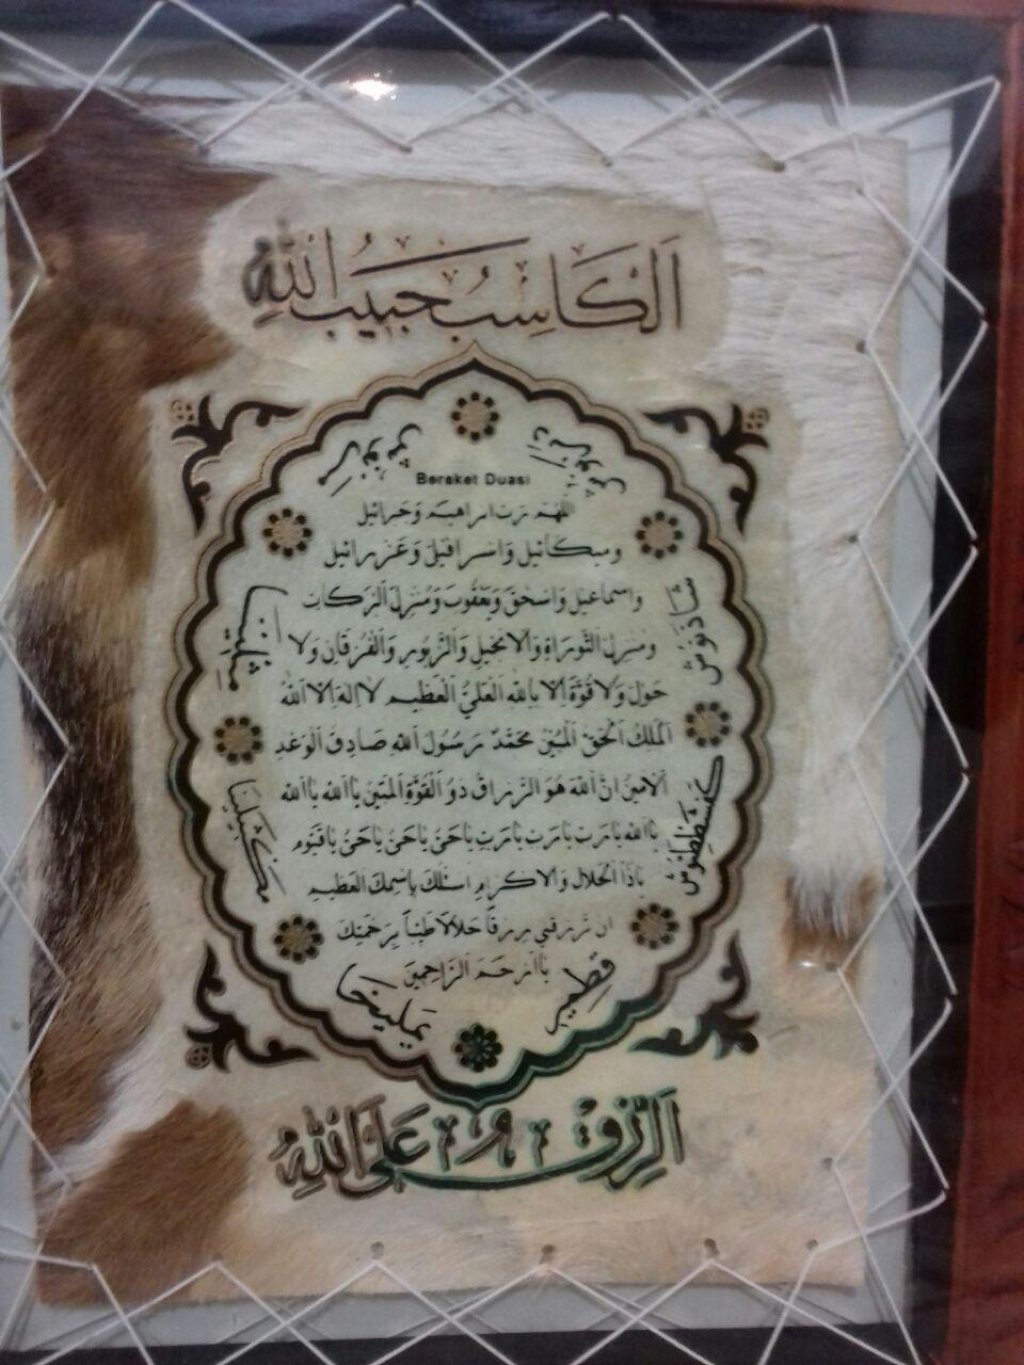 اَلْكَاسِبُ حَبِيبُ اللهِ
مرنوش
دبرنوش
Bereket Duası
اللهم رب ابراهيم وجبرائيل
وميكائيل واسرافيل وعزرائيل
واسماعيل واسحق ويعقوب ومنزل البركات
ومنزل التوراة والانجيل والزبور والفرقان ولا
حول ولا قوة الا بالله العلي العظيم لا اله الا الله
الملك الحق المبين محمد رسول الله صادق الوعد
الامين ان الله هو الرزاق ذو القوة المتين يا الله يا الله
يا الله يا رب يا رب يا رب يا حي يا حي يا حي يا قيوم
ياذا الجلال والاكرام اسئلك باسمك العظيم
ان ترزقني رزقا حلالا طيبا برحمتك
يا ارحم الراحمين
شاذنوش
كفشططيوش
قطمير
يمليخا
مكثلينا
مثلينا
اَلرِّزْقُ عَلَى اللهِ